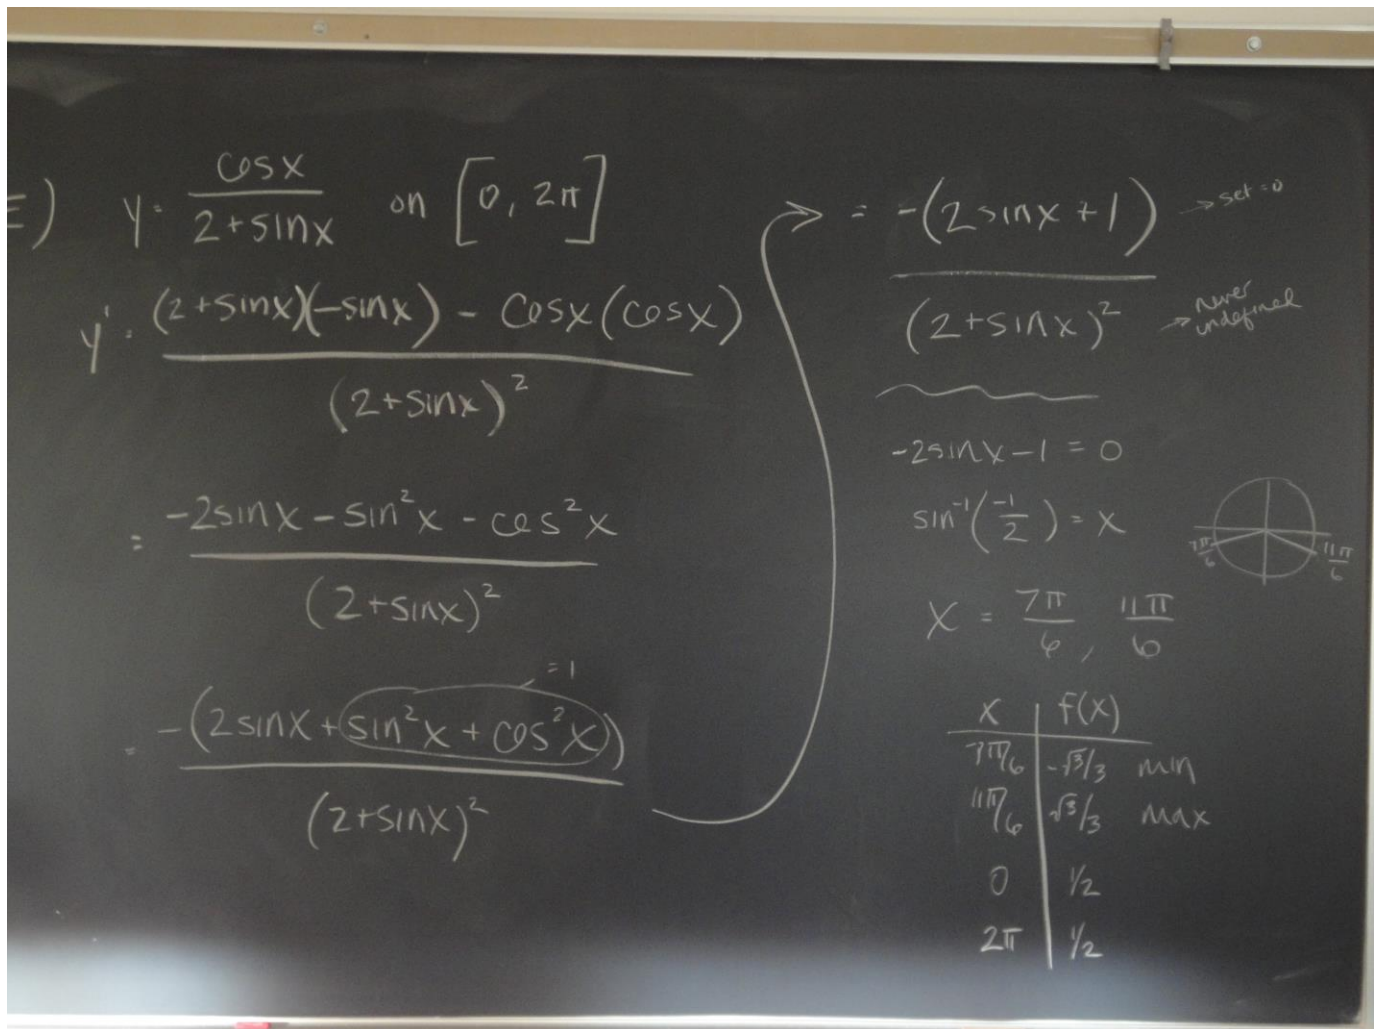 E) y = cosx / 2+sinx on [0, 2π]
y' = (2+sinx)(-sinx) - cosx(cosx) / (2+sinx)²
= -2sinx - sin²x - cos²x / (2+sinx)²
= -(2sinx + sin²x + cos²x) / (2+sinx)²
=1
= -(2sinx+1) / (2+sinx)²
→ set=0
→ never
undefined
-2sinx-1 = 0
sin⁻¹(-1/2) = x
7π/6 11π/6
x = 7π/6, 11π/6
x f(x)
7π/6 -√3/3 min
11π/6 √3/3 max
0 1/2
2π 1/2